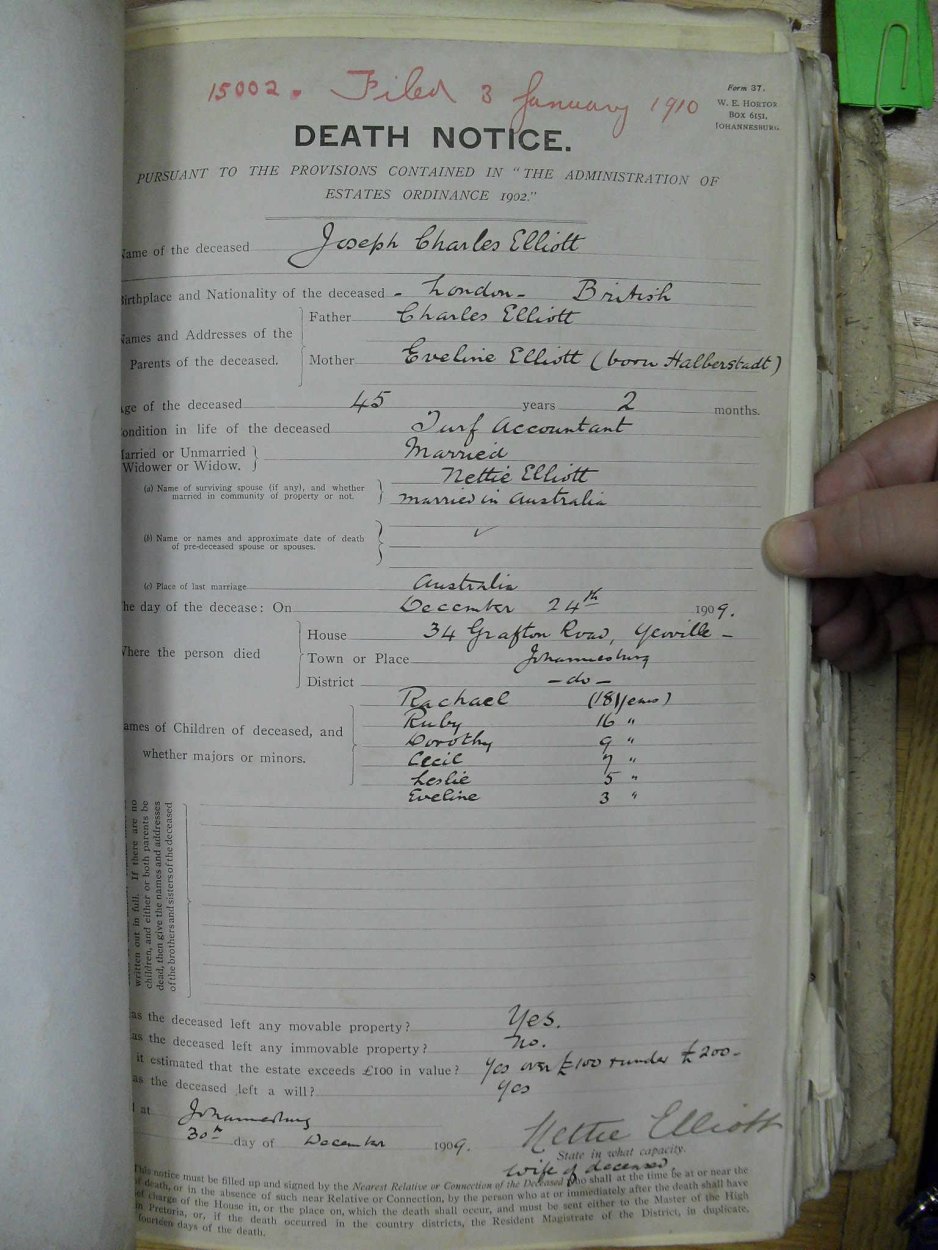 15002. Filed 3 January 1910
Form 37.
W. E. HORTOR
BOX 6151,
JOHANNESBURG.
DEATH NOTICE.
PURSUANT TO THE PROVISIONS CONTAINED IN "THE ADMINISTRATION OF
ESTATES ORDINANCE 1902."
ame of the deceased Joseph Charles Elliott
Birthplace and Nationality of the deceased - London - British
ames and Addresses of the
Parents of the deceased.
Father Charles Elliott
Mother Eveline Elliott (born Halberstadt)
ge of the deceased 45 years 2 months.
ondition in life of the deceased Turf Accountant
arried or Unmarried
Widower or Widow.
Married
(a) Name of surviving spouse (if any), and whether
married in community of property or not.
Nettie Elliott
married in Australia
(b) Name or names and approximate date of death
of pre-deceased spouse or spouses.
(c) Place of last marriage Australia
he day of the decease: On December 24th 1909.
here the person died
House 34 Grafton Road, Yeoville -
Town or Place Johannesburg
District - do -
ames of Children of deceased, and
whether majors or minors.
Rachael (18 years)
Ruby 16 "
Dorothy 9 "
Cecil 7 "
Leslie 5 "
Eveline 3 "
written out in full. If there are no
children, and either or both parents be
dead, then give the names and addresses
of the brothers and sisters of the deceased
as the deceased left any movable property? Yes.
as the deceased left any immovable property? No.
it estimated that the estate exceeds £100 in value? Yes over £100 & under £200 -
as the deceased left a will? Yes
at Johannesburg
30th day of December 1909.
Nettie Elliott
State in what capacity.
wife of deceased
This notice must be filled up and signed by the Nearest Relative or Connection of the Deceased who shall at the time be at or near the
death, or in the absence of such near Relative or Connection, by the person who at or immediately after the death shall have
charge of the House in, or the place on, which the death shall occur, and must be sent either to the Master of the High
Pretoria, or, if the death occurred in the country districts, the Resident Magistrate of the District, in duplicate,
fourteen days of the death.